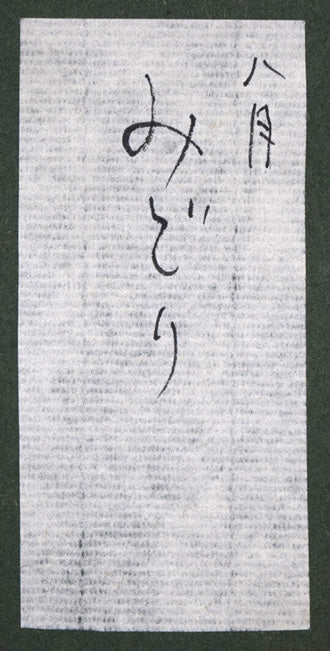 八月
みどり